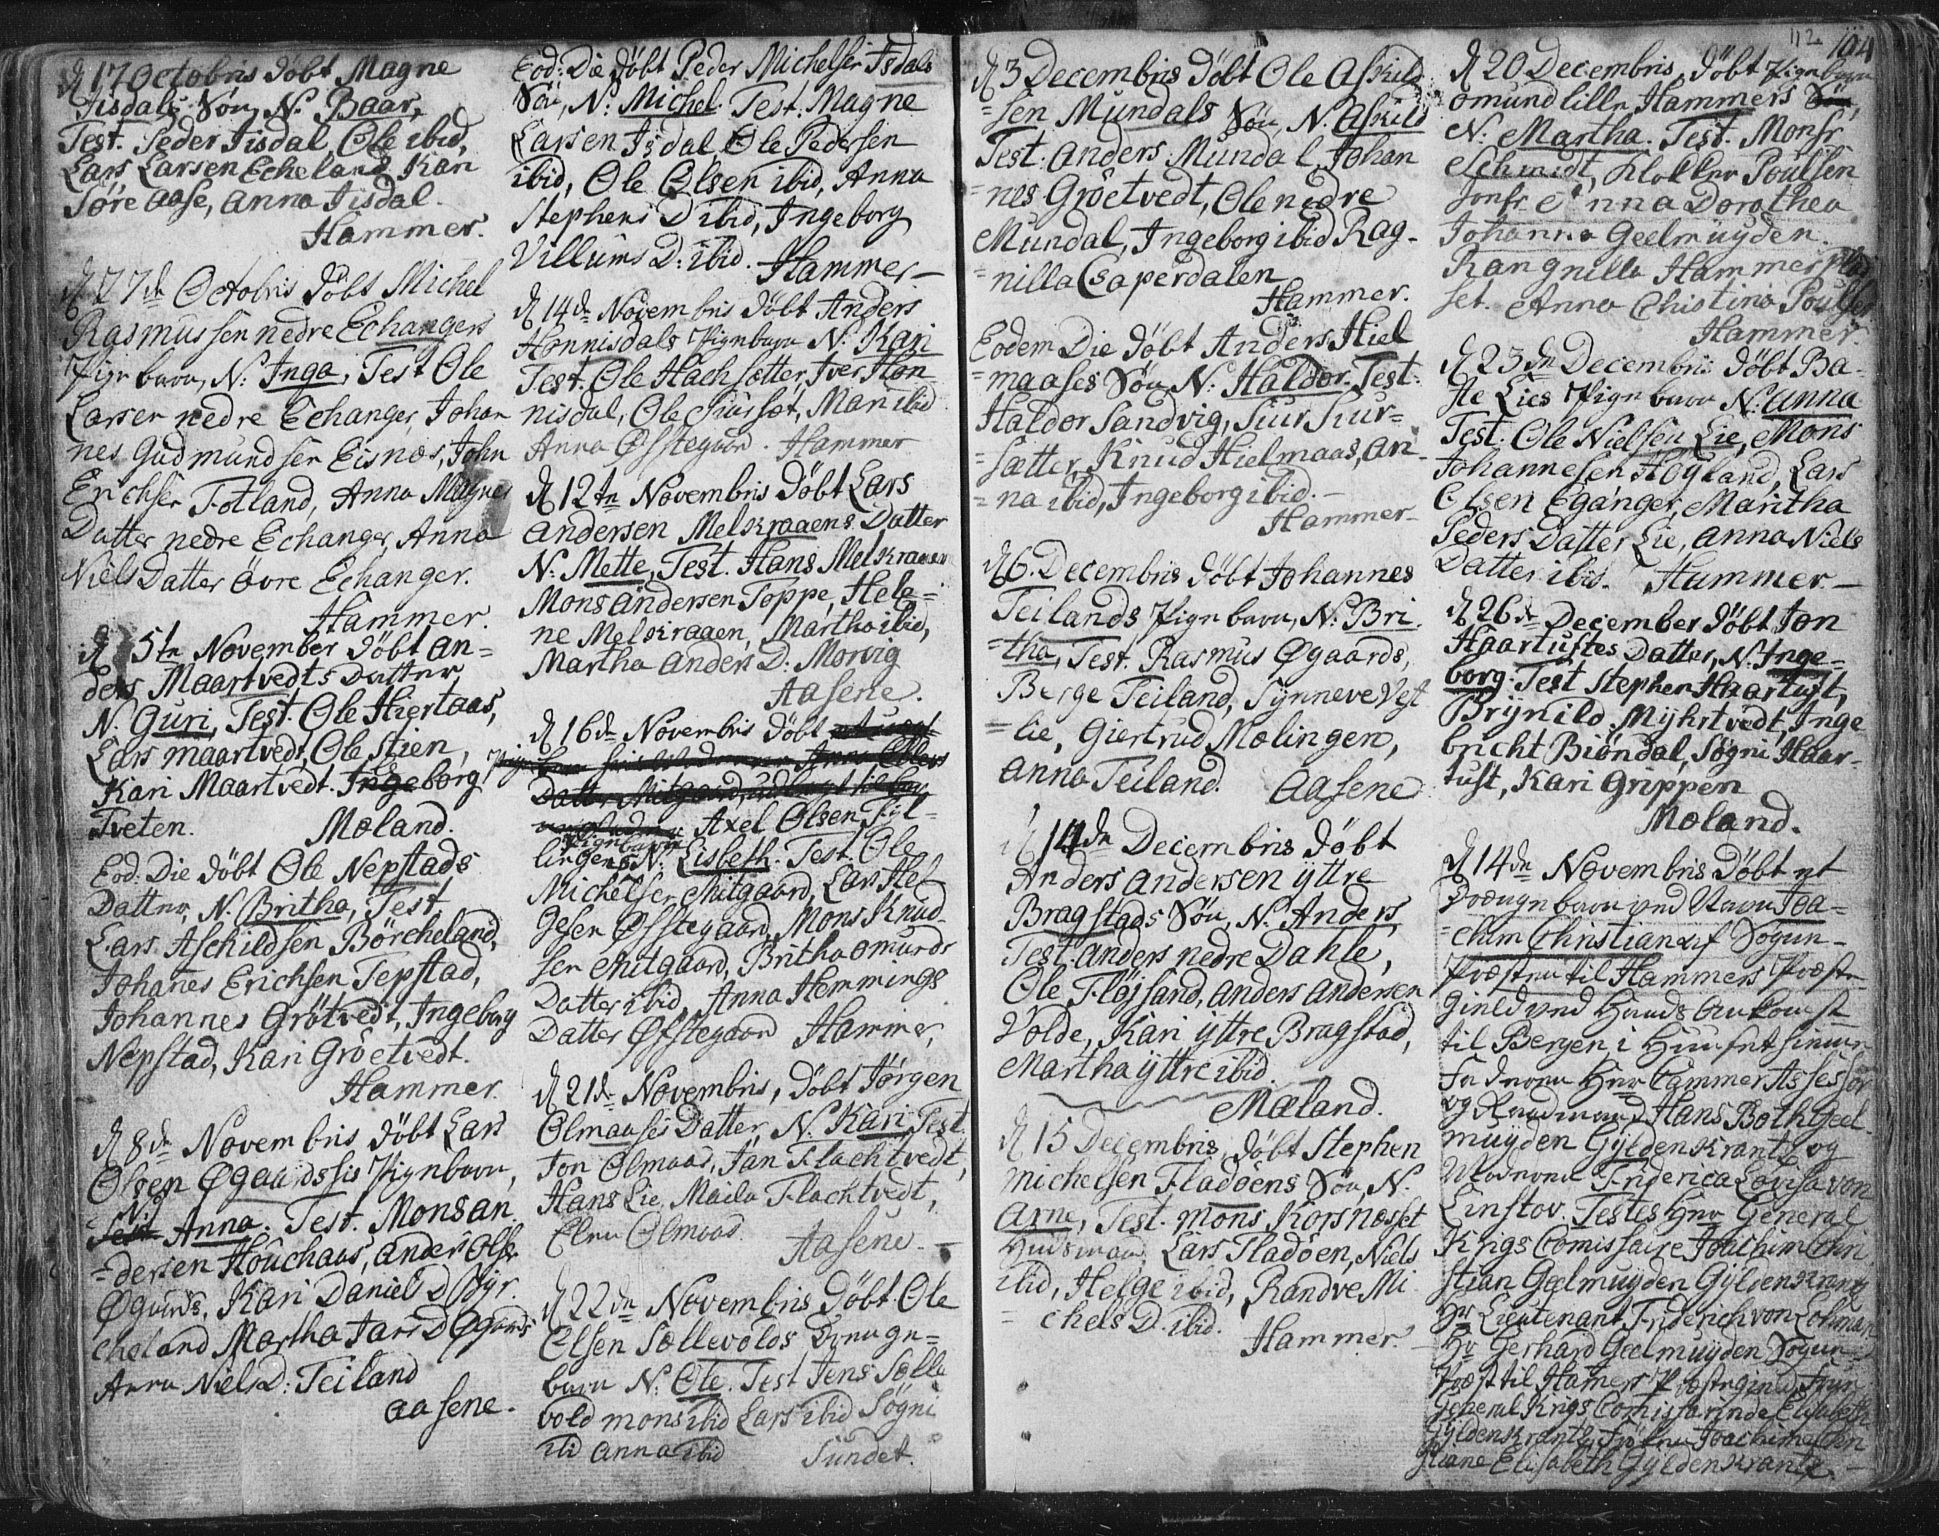 112. 104
d 17 Octobris döbt Magne
Tisdals Søn, N. Baar,
Test. Peder Tisdal, Ole ibid,
Lars Larsen Echeland, Kari
Töre aase, Anna Tisdal.
Hammer.
d 27de Octobris döbt Michel
Rasmussen nedre Echangers
Pigebarn, N. Inga, Test Ole
Larsen nedre Echanger, Johan
nes Gudmundsen Eisnes, John
Erichsen Fotland, Anna Magnes
Datter nedre Echanger, Anna
Niels Datter övre Echanger.
Hammer.
d 5te November döbt An=
ders Maartvedts Datter,
N. Guri, Test. Ole Hiertaas,
Lars Maartvedt, Ole Stien,
Kari Maartvedt. Ingeborg
Tveten. Mæland.
Eod: Die döbt Ole Nepstads
Datter, N. Britha, Test
Lars Aschildsen Börcheland,
Johanes Erichsen Tepstad,
Johannes Grötvedt, Ingeborg
Nepstad, Kari Gröetvedt.
Hammer.
d 8de Novembris döbt Lars
Olsen Øgaards Pigebarn,
N: Anna. Test. Mons an
=dersen Houchaas, anders Olsen
Øgaards, Kari Daniels D Byr
cheland Martha Jans D Øgaards
Anna Niels D: Teiland
Aasene.
Eod: Die döbt Peder Michelsen Tsdals
Søn, N: Michel. Test. Magne
Larsen Tsdal Ole Pedersen
ibid, Ole Olsen ibid, Anna
Stephens D ibid, Ingeborg
Villums D: ibid. Hammer
d 14de Novembris döbt Anders
Honnisdals Pigebarn N: Kari
Test. Ole Hachsetter, Iver Hon
nisdal, Ole Siursæt, Mari ibid
Anna Øfstegaard. Hammer
d 12te Novembris döbt Lars
Andersen Melkraaens Datter
N: Mette, Test. Hans Melkraaen
Mons Andersen Toppe, Hele=
ne Melkraaen, Martha ibid,
Martha Anders D: Morvig
Aasene.
d 16de Novembris döbt
Anna Ellers
Datter Mitgaard, udlagt til
Axel Olsen Kyl=
lingens Pigebarn N: Lisbeth. Test. Ole
Michelsen Mitgaard, Lars Hel
gesen Øfstegaard, Mons Knud
sen Mitgaard, Britha Omunds
Datter ibid, Anna Hemmings
Datter Øfstegaard Hammer,
d 21de Novembris, döbt Jörgen
Olmaases Datter, N. Kari Test
Jon Olmaas, Jan Flachtvedt,
Hans Lie, Maila Flachtvedt,
Elen Olmaas. Aasene.
d 22de Novembris Döbt Ole
Olsen Sællevolds Drenge=
barn N: Ole. Test Jens Sælle
vold Mons ibid Lars ibid Sögni
ibi Anna ibid Sundet.
d 3 Decembris döbt Ole Askild
=sen Mundals Søn, N. Askild
Test. Anders Mundal, Johan
=nes Gröetvedt, Ole nedre
Mundal, Ingeborg ibid Rag-
=nilla Csaperdalen
Hammer.
Eodem Die döbt Anders Hiel
=maases Søn N: Haldor. Test:
Haldor Sandvig, Siur Siur=
=sætter, Knud Hielmaas, An
=na ibid, Ingeborg ibid.
Hammer
d 6. Decembris döbt Johannes
Teilands Pigebarn, N: Bri
=tha, Test. Rasmus Øgaards,
Berge Teiland, Synneve Vest
=lie, Giertrud Mælingen,
Anna Teiland. Aasene
d 14de Decembris döbt
Anders Andersen yttre
Bragstads Søn, N. Anders,
Test. Anders nedre Dahle,
Ole Fløjsand, Anders Andersen
Volde, Kari yttre Bragstad,
Martha yttre ibid.
Mæland.
d 15 Decembris, döbt Stephen
Michelsen Fladöens Søn, N.
Arne, Test. Mons Korsnæsset
Huusmand, Lars Fladöen, Niels
ibid, Helge ibid, Randve Mi
=chels D. ibid.
Hammer.
d 20 Decembris, döbt Pigebarn
Omund lille Hammers
N. Martha. Test. Monsr
Schmidt, Klokker Poulsen
Jomfr Anna Dorothea
Johanna Geelmuyden.
Rangnilla Hammer Plad
set. Anna Christina Poulsen
Hammer.
d 23de Decembris döbt Ba-
ste Lies Pigebarn N: Anna
Test: Ole Nielsen Lie, Mons
Johannesen Höyland, Lars
Olsen Eganger, Maritha
Peders Datter Lie, Anna Niels
Datter ibid. Hammer.
d 26de December döbt Jon
Haartuftes Datter, N. Inge=
borg. Test Stephen Haartuft,
Brynild Myhrtvedt, Inge
bricht Biöndal, Sögni Haar-
tuft, Kari Grippen
Mæland.
d 14de Novembris Döbt et
Drængebarn ved Navn Joa=
=chim Christian af Sogne-
Præsten til Hammers Præste
Gield ved Hands Ankomst
til Bergen, i Huuset hos sine
Forældre Herr Cammer Assessor
og Raadmand Hans Both Geel
muyden Gyldenkrantz og
Madame Friderica Lovisa von
Linstov. Testes Herr General
Krigs Comissaire Joachim Chri
stian Geelmuyden Gyldenkrantz
Hr Lieutenant Friderich von Lohman
Hr Gerhard Geelmuyden Sogne
Præst til Hamers Præstegield, Frue
General Krigs Comissarinde Elisabeth
Gyldenkrantz, Fröken Joachima Chri
stiane Elisabeth Gyldenkrantz.